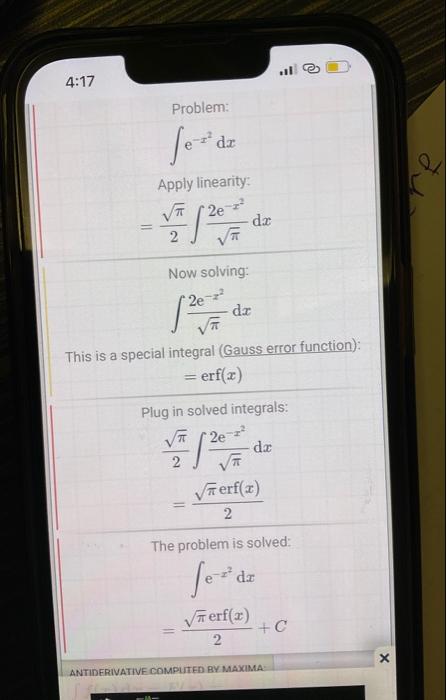 4:17
Problem:
∫ e^{-x^2} dx
Apply linearity:
= √π/2 ∫ 2e^{-x^2}/√π dx
Now solving:
∫ 2e^{-x^2}/√π dx
This is a special integral (Gauss error function):
= erf(x)
Plug in solved integrals:
√π/2 ∫ 2e^{-x^2}/√π dx
= √π erf(x)/2
The problem is solved:
∫ e^{-x^2} dx
= √π erf(x)/2 + C
ANTIDERIVATIVE COMPUTED BY MAXIMA:
×